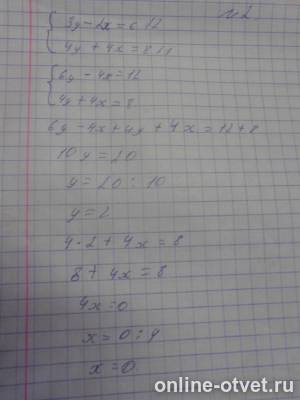 №2
3y - 2x = 6 |·2
4y + 4x = 8
6y - 4x = 12
4y + 4x = 8
6y - 4x + 4y + 4x = 12 + 8
10y = 20
y = 20 : 10
y = 2
4 · 2 + 4x = 8
8 + 4x = 8
4x = 0
x = 0 : 4
x = 0
online-otvet.ru